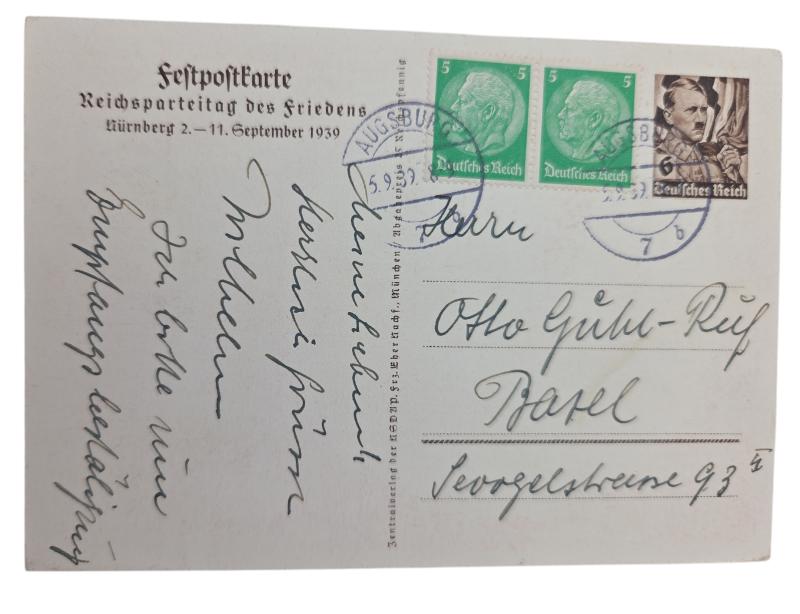 Festpostkarte
Reichsparteitag des Friedens
Nürnberg 2.–11. September 1939
5 5
Deutsches Reich
5 5
Deutsches Reich
6
Deutsches Reich
AUGSBURG
5.9.39.
7 b
AUGSBURG
5.9.39.
7 b
Zentralverlag der NSDAP. Frz. Eher Nachf., München / Abgabepreis 25 Reichspfennig
Herrn
Otto Gühl-Ruf
Basel
Sevogelstrasse 93 II
Meine
Herzliche Grüsse
Wilhelm
Ich bitte um
Empfangsbestätigung